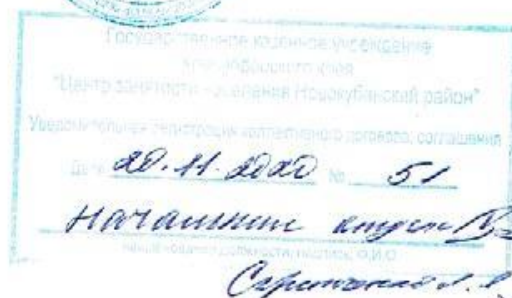 Государственное казенное учреждение
Краснодарского края
"Центр занятости населения Новокубанский район"
Уведомительная регистрация коллективного договора, соглашения
Дата 20.11.2020 № 51
Начальник отдела
наименование должности, подпись, Ф.И.О.